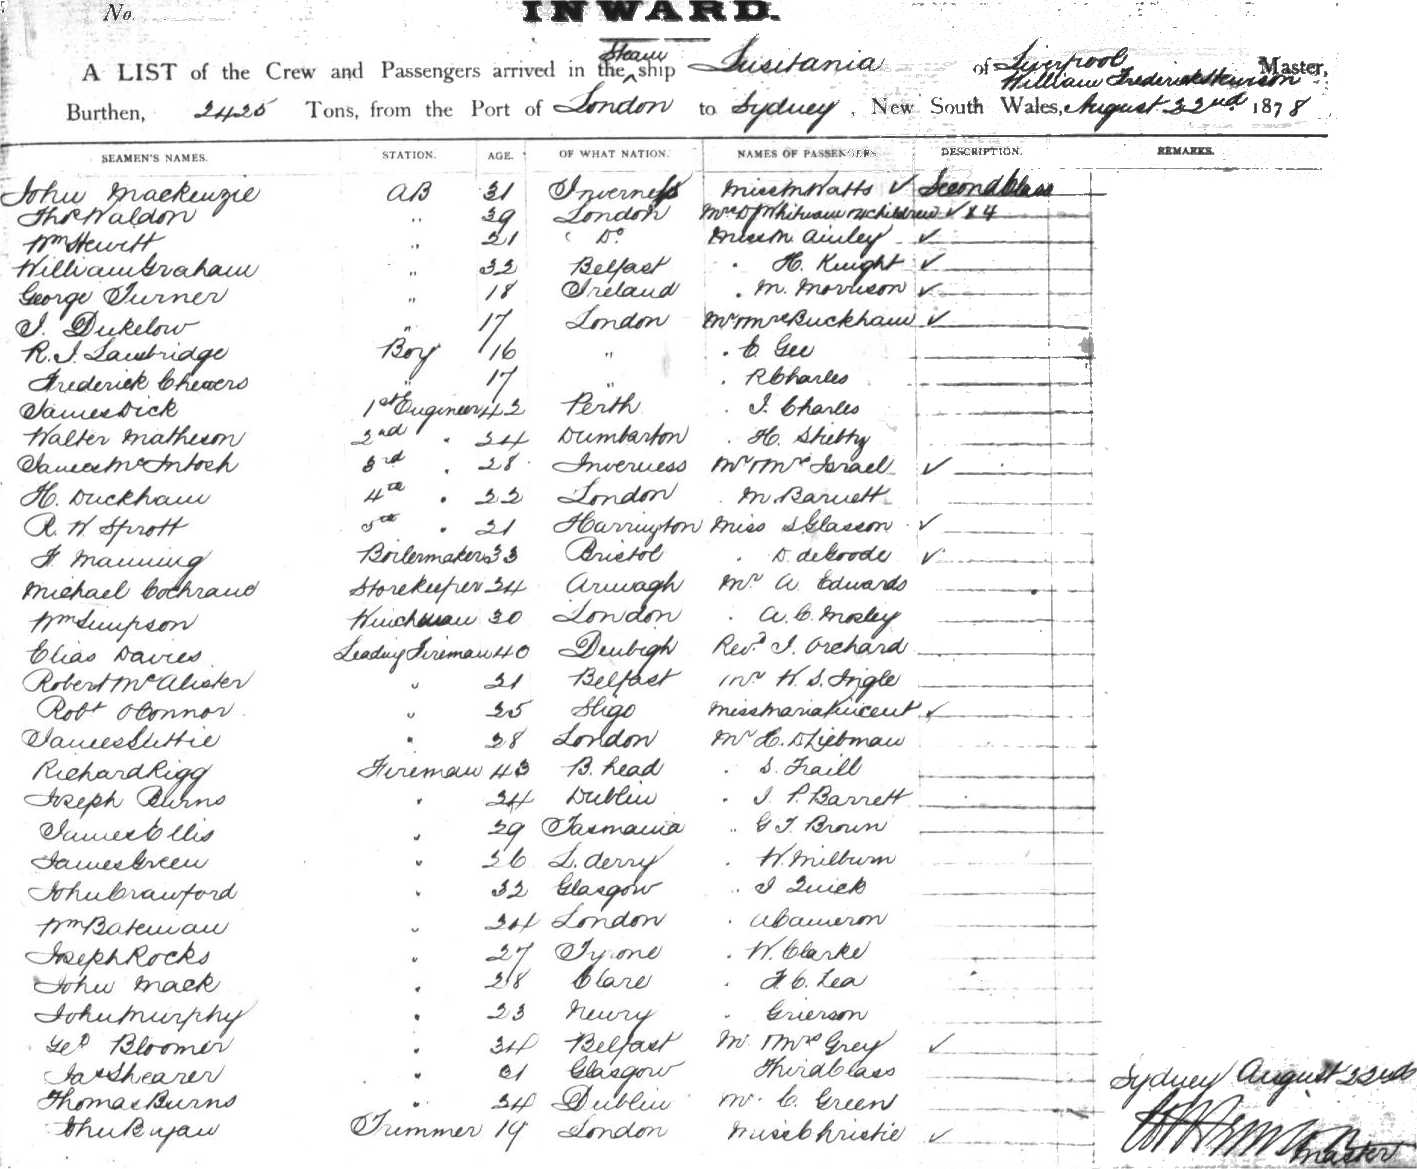 No.
INWARD.
A LIST of the Crew and Passengers arrived in the Steam ship Lusitania of Liverpool William Frederick Master,
Burthen, 2425 Tons, from the Port of London to Sydney, New South Wales, August 22nd 1878
SEAMEN'S NAMES. STATION. AGE. OF WHAT NATION. NAMES OF PASSENGERS DESCRIPTION. REMARKS.
John Mackenzie AB 31 Inverness Miss M Watts ✓ Second Class
Thos Waldon " 39 London Mrs D J Whitnam & 4 children ✓ x 4
Wm Hewitt " 21 Do Miss M. Ainley ✓
William Graham " 32 Belfast " H. Knight ✓
George Turner " 18 Ireland " M. Morrison ✓
J. Dukelow " 17 London Mr & Mrs Buckham ✓
R. J. Lambridge Boy 16 " " C Gee
Frederick Cheers " 17 " " R Charles
James Dick 1st Engineer 42 Perth " J. Charles
Walter Matheson 2nd " 34 Dumbarton " H.
James McIntosh 3rd " 28 Inverness Mr & Mrs Israel ✓
H. Duckham 4th " 22 London " M. Barnett
R. W. Sprott 5th " 21 Harrington Miss S Glasson ✓
F. Manning Boilermaker 33 Bristol " D. deGoode ✓
Michael Cochrane Storekeeper 34 Armagh Mr A Edwards
Wm Simpson Winchman 30 London " A. C. Mosley
Elias Davies Leading Fireman 40 Denbigh Revd J. Orchard
Robert McAlister " 31 Belfast Mr W. S. Ingle
Robt O'Connor " 35 Sligo Miss Maria Vincent ✓
James Suttie " 38 London Mr H. D Liebman
Richard Rigg Fireman 43 B. head " S. Traill
Joseph Burns " 34 Dublin " J. P. Barrett
James Ellis " 29 Tasmania " G T Brown
James Green " 36 L. derry " W. Milburn
John Crawford " 32 Glasgow " J Quick
Wm Bateman " 34 London " A Cameron
Joseph Rocks " 27 Tyrone " W. Clarke
John Mack " 38 Clare " F C. Lea
John Murphy " 23 Newry " Grierson
Geo Bloomer " 34 Belfast Mr & Mrs Grey ✓
Jas Shearer " 31 Glasgow Third Class
Thomas Burns " 34 Dublin Mr C. Green
John Ryan Trimmer 19 London Miss Christie ✓
Sydney August 22nd
Master